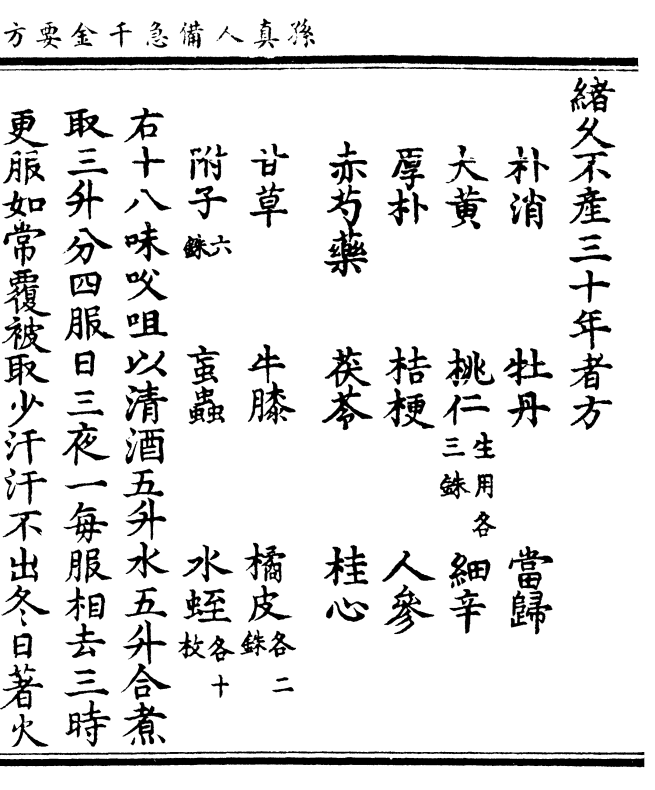 孫真人備急千金要方
緒久不產三十年者方
朴消 牡丹 當歸
大黃 桃仁生用各三銖 細辛
厚朴 桔梗 人參
赤芍藥 茯苓 桂心
甘草 牛膝 橘皮各二銖
附子六銖 䖟蟲 水蛭各十枚
右十八味㕮咀以清酒五升水五升合煮
取三升分四服日三夜一每服相去三時
更服如常覆被取少汗汗不出冬日著火